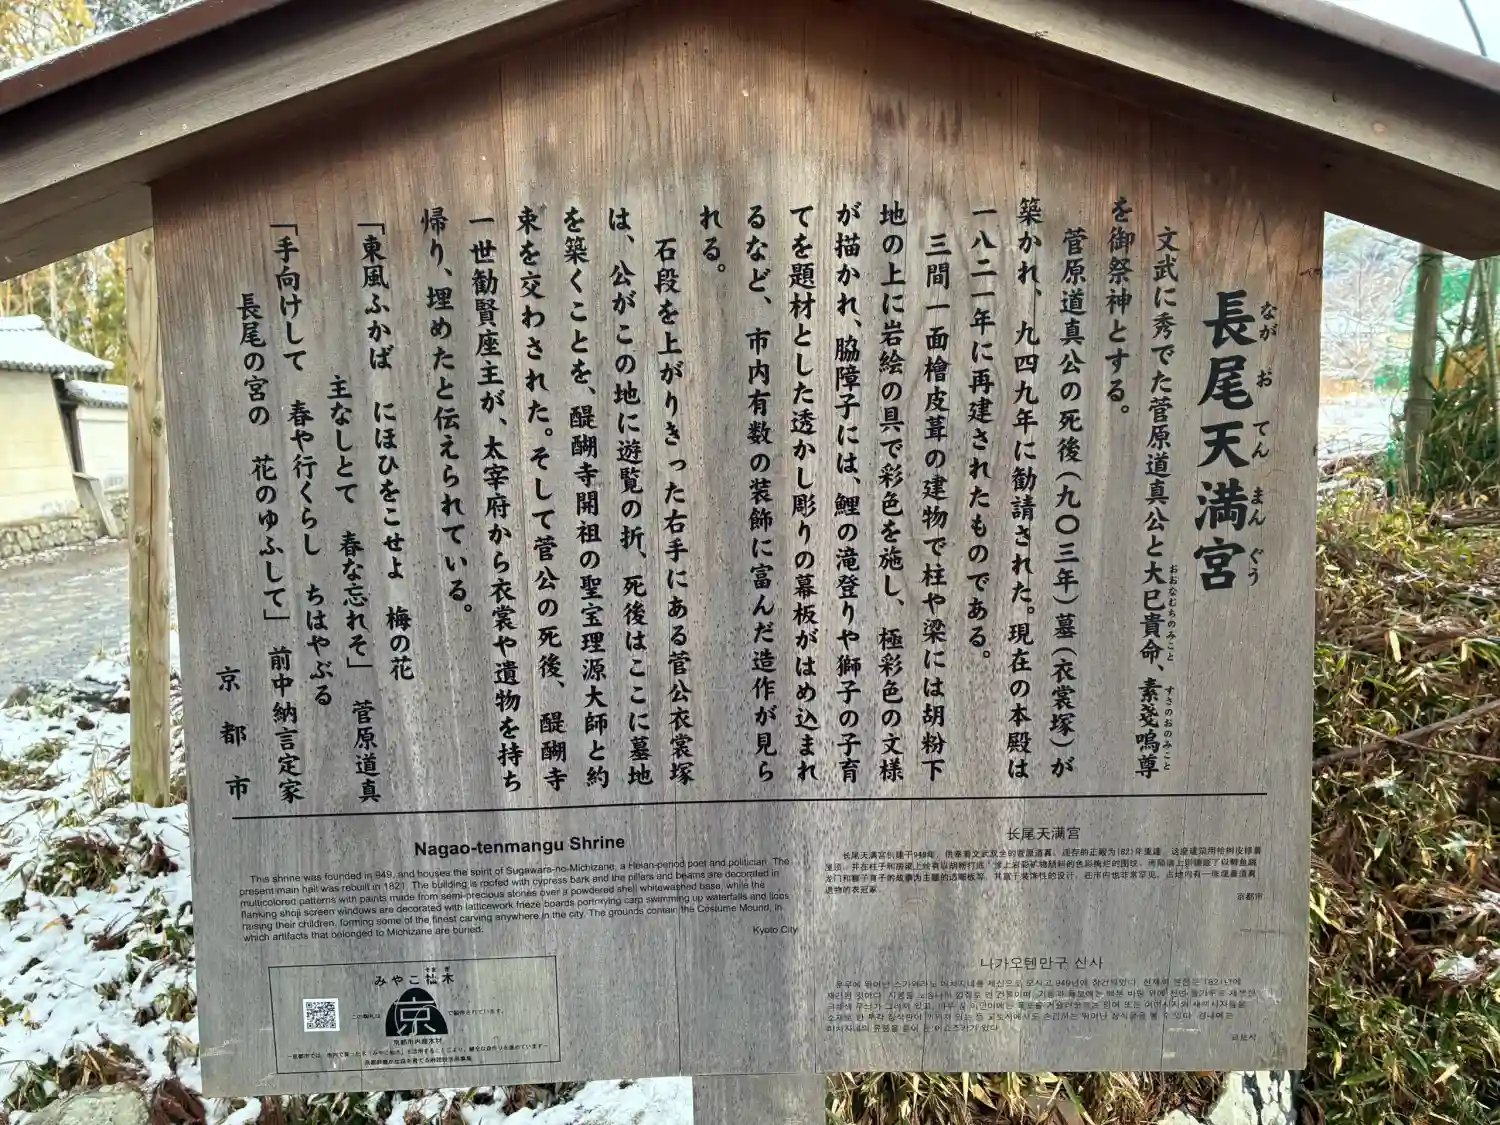 長尾天満宮
ながおてんまんぐう
文武に秀でた菅原道真公と大巳貴命、素戔嗚尊
おおなむちのみこと
すさのおのみこと
を御祭神とする。
菅原道真公の死後(九〇三年)墓(衣裳塚)が
築かれ、九四九年に勧請された。現在の本殿は
一八二一年に再建されたものである。
三間一面檜皮葺の建物で柱や梁には胡粉下
地の上に岩絵の具で彩色を施し、極彩色の文様
が描かれ、脇障子には、鯉の滝登りや獅子の子育
てを題材とした透かし彫りの幕板がはめ込まれ
るなど、市内有数の装飾に富んだ造作が見ら
れる。
石段を上がりきった右手にある菅公衣裳塚
は、公がこの地に遊覧の折、死後はここに墓地
を築くことを、醍醐寺開祖の聖宝理源大師と約
束を交わされた。そして菅公の死後、醍醐寺
一世勧賢座主が、太宰府から衣裳や遺物を持ち
帰り、埋めたと伝えられている。
「東風ふかば にほひをこせよ 梅の花
主なしとて 春な忘れそ」 菅原道真
「手向けして 春や行くらし ちはやぶる
長尾の宮の 花のゆふして」 前中納言定家
京都市
Nagao-tenmangu Shrine
This shrine was founded in 949, and houses the spirit of Sugawara-no-Michizane, a Heian-period poet and politician. The
present main hall was rebuilt in 1821. The building is roofed with cypress bark and the pillars and beams are decorated in
multicolored patterns with paints made from semi-precious stones over a powdered shell whitewashed base, while the
flanking shoji screen windows are decorated with latticework frieze boards portraying carp swimming up waterfalls and lions
raising their children, forming some of the finest carving anywhere in the city. The grounds contain the Costume Mound, in
which artifacts that belonged to Michizane are buried.
Kyoto City
长尾天满宫
京都市
나가오텐만구 신사
みやこ杣木
そまぎ
この駒札は
京
で製作されています。
京都市内産木材